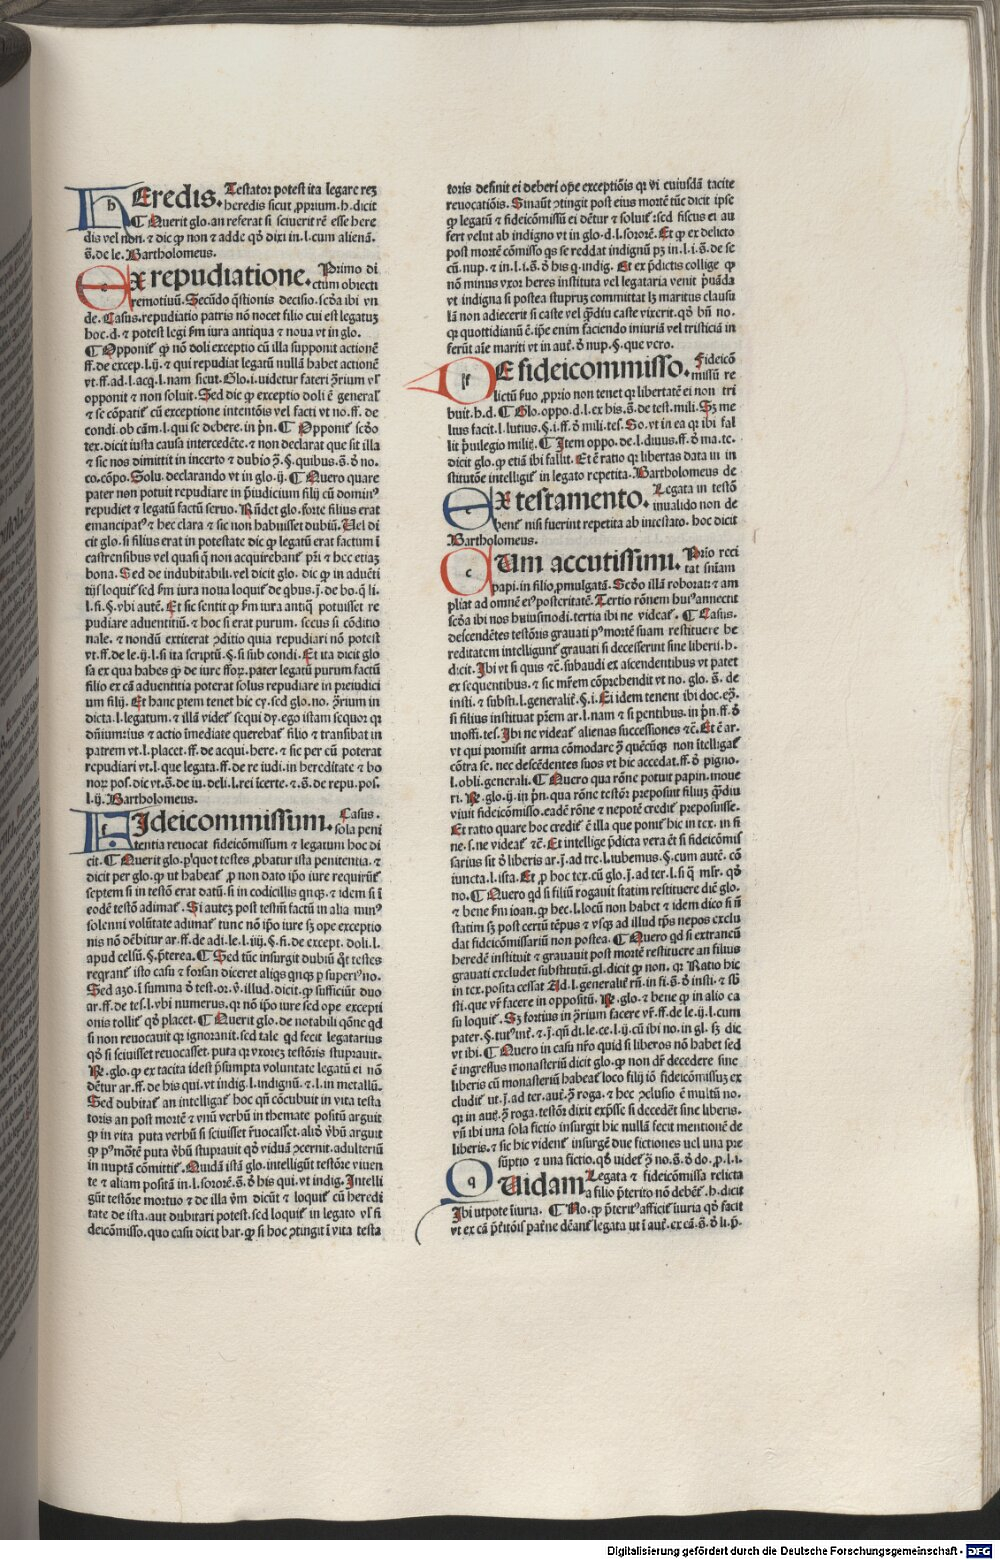 hEredis. Testator potest ita legare rez
heredis sicut ꝓprium. h. dicit
¶ Querit glo. an referat si sciuerit rē esse here
dis vel non. ⁊ dic ꝙ non ⁊ adde qd̓ dixi in. l. cum alienā.
s̄. de le. Bartholomeus.
eX repudiatione. Primo di
ctum obiecti
remotiuū. Secūdo q̄stionis decisio. scd̓a ibi vn
de. Casus. repudiatio patris nō nocet filio cui est legatuz
hoc. d. ⁊ potest legi ẜm iura antiqua ⁊ noua vt in glo.
¶ Opponit̄ ꝙ nō doli exceptio cū illa supponit actionē
ff. de excep. l. ij. ⁊ qui repudiat legatū nullā habet actionē
vt. ff. ad. l. acq̄. l. nam sicut. Glo. i. videtur fateri ꝯ̄rium vl̓
opponit ⁊ non soluit. Sed dic ꝙ exceptio doli ē general̓
⁊ se cōpatit̄ cū exceptione intentōis vel facti vt no. ff. de
condi. ob cām. l. qui se debere. in p̄n. ¶ Opponit̄ scd̓o
tex. dicit iusta causa intercedēte. ⁊ non declarat que sit illa
⁊ sic nos dimittit in incerto ⁊ dubio
co. cōpo. Solu. declarando vt in glo. ij. ¶ Quero quare
pater non potuit repudiare in p̄iudicium filij cū domin⁹
repudiet ⁊ legatū factū seruo. Rn̄det glo. forte filius erat
emancipat⁹ ⁊ hec clara ⁊ sic non habuisset dubiū. Uel di
cit glo. si filius erat in potestate dic ꝙ legatū erat factum ī
castrensibus vel quasi q̄ non acquirebant̄ pr̄i ⁊ hec etiaz
bona. Sed de indubitabili. vel dicit glo. dic ꝙ in aduēti
tijs loquit̄ sed ẜm iura noua loquit̄ de
l. fi. §. vbi autē. Et sic sentit ꝙ ẜm iura antiq̄ potuisset re
pudiare aduentitiū. ⁊ hoc si erat purum. secus si cōditio
nale. ⁊ nondū extiterat ꝯditio quia repudiari nō potest
vt. ff. de le. ij. l. si ita scriptū. §. si sub condi. Et ita dicit glo
sa ex qua habes ꝙ de iure fforꝝ. pater legatū purum factū
filio ex cā aduentitia poterat solus repudiare in preiudici
um filij. Et hanc ptem tenet hic cy. sed glo. no. ꝯ̄rium in
dicta. l. legatum. ⁊ illā videt̄ sequi dy. ego istam sequor qꝛ
dn̄iumrius ⁊ actio īmediate querebat̄ filio ⁊ transibat in
patrem vt. l. placet. ff. de acqui. here. ⁊ sic per eū poterat
repudiari vt. l. que legata. ff. de re iudi. in hereditate ⁊ bo
noꝝ pos. dic vt. s̄. de iu. deli. l. rei īcerte. ⁊. s̄. de repu. pos.
l. ij. Bartholomeus.
fIdeicommissum. Casus.
sola peni
tentia reuocat fideicōmissum ⁊ legatum hoc di
cit. ¶ Querit glo. p̄ quot testes ꝓbatur ista penitentia. ⁊
dicit per glo. ꝙ vt habeat̄ ꝓ non dato ip̄o iure requirūt̄
septem si in testō erat datū. si in codicillis qnqꝫ. ⁊ idem si ī
eodē testō adimat̄. Si autez post testm̄ factū in alia min⁹
solenni volūtate adimat̄ tunc nō ip̄o iure sꝫ ope exceptio
nis nō dēbitur ar. ff. de adi. le. l. iiij. §. fi. de except. doli. l.
apud celsū. §. p̄terea. ¶ Sed tūc insurgit dubiū qt̄ testes
reqrant̄ isto casu ⁊ forsan diceret aliqs qnqꝫ p superi⁹ no.
Sed azo. ī summa ō̄ test. or. v̄. illud. dicit. ꝙ sufficiūt duo
ar. ff. de tes. l. vbi numerus. qꝛ nō ip̄o iure sed ope excepti
onis tollit̄ qd̓ placet. ¶ Querit glo. de notabili qōne qd
si non reuocauit qꝛ ignoranit. sed tale qd fecit legatarius
qd̓ si sciuisset reuocasset. puta qꝛ vxorez testōris stuprauit.
℟. glo. ꝙ ex tacita idest p̄sumpta voluntate legatū ei non
dētur ar. ff. de his qui. vt indig. l. indignū. ⁊. l. in metallū.
Sed dubitat̄ an intelligat̄ hoc qn̄ cōcubuit in vita testa
toris an post mortē ⁊ vnū verbū in themate positū arguit
ꝙ in vita puta verbū si sciuisset r̄uocasset. aliō v̄bū arguit
ꝙ p⁹ mōtē puta v̄bū stuprauit qd̓ viduā ꝯcernit. adulteriū
in nuptā cōmittit̄. Quidā istā glo. intelligūt testōre viuen
te ⁊ aliam positā in. l. sororē. s̄. ō̄ his qui. vt indig. Intelli
gūt testōre mortuo ⁊ de illa v̄m dicūt ⁊ loquit̄ cū heredi
tate de ista. aut dubitari potest. sed loquit̄ in legato vl̓ fi
deicōmisso. quo casu dicit bar. ꝙ si hoc ꝯtingit ī vita testa
toris definit ei deberi ope exceptiōis qꝛ vi cuiusdā tacite
reuocatiōis. Sinaūt ꝯtingit post eius mortē tūc dicit ipse
ꝙ legatū ⁊ fideicōmissū ei dētur ⁊ soluit̄: sed fiscus ei au
fert velut ab indigno vt in glo. d. l. sororē. Et ꝙ ex delicto
post mortē cōmisso qs se reddat indignū pꝫ in. l. i. s̄. de se
cū. nup. ⁊ in. l. i. s̄. ō̄ his q̄. indig. Et ex p̄dictis collige ꝙ
nō minus vxor heres instituta vel legataria venit p̄uāda
vt indigna si postea stupruꝫ committat lꝫ maritus clausu
lā non adiecerit si caste vel q̄ꝫdiu caste vixerit. qd̓ bn̄ no.
qꝛ quottidianū ē. ip̄e enim faciendo iniuriā vel tristiciā in
ferūt aīe mariti vt in aut̄. ō̄ nup. §. que vero.
dE fideicommisso. Fideicō
missū re
lictū ẜuo ꝓprio non tenet qꝛ libertatē ei non tri
buit. h. d. ¶ Glo. oppo. d. l. ex his. s̄. de test. mili. Sꝫ me
lius facit. l. lutius. §. i. ff. ō̄ mili. tes. So. vt in ea qꝛ ibi fal
lit p̄uilegio militē. ¶ Item oppo. de. l. diuus. ff. ō̄ ma. te.
dicit glo. ꝙ etiā ibi fallit. Et ē ratio qꝛ libertas data ui in
stitutōe intelligit̄ in legato repetita. Bartholomeus de
eX testamento. Legata in testō
inualido non de
bent̄ nisi fuerint repetita ab intestato. hoc dicit
Bartholomeus.
cUm accutissimi. Prīo reci
tat sn̄iam
papi. in filio ꝓmulgatā. Scd̓o illā roborat: ⁊ am
pliat ad omnē ei⁹ posteritatē. Tertio rōnem hui⁹ annectit
scd̓a ibi nos huiusmodi. tertia ibi ne videat̄. ¶ Casus.
descendētes testōris grauati p⁹ mortē suam restituere he
reditatem intelligunt̄ grauati si decesserint sine liberis. h.
dicit. Ibi vt si quis ⁊c̄. subaudi ex ascendentibus vt patet
ex sequentibus. ⁊ sic mr̄em cōprehendit vt no. glo. s̄. de
insti. ⁊ substi. l. generalit̄. §. i. Et idem tenent ibi doc.
si filius instituat pr̄em ar. l. nam ⁊ si pentibus. in p̄n. ff. ō̄
inoffi. tes. Ibi ne videat̄ alienas successiones ⁊c̄. Et ē ar.
vt qui promisit arma cōmodare ꝯ̄ quēcūqꝫ non ītelligat̄
cōtra se. nec descēdentes suos vt hic accedat. ff. ō̄ pigno.
l. obli. generali. ¶ Quero qua rōne potuit papin. moue
ri. ℟. glo. ij. in p̄n. qua rōne testōr preposuit filiuz q̄ꝫdiu
viuit fideicōmisso. eadē rōne ⁊ nepotē credit̄ preposuisse.
Et ratio quare hoc credit̄ ē illa que ponit̄ hic in tex. in fi
ne. s. ne videat̄ ⁊c̄. Et intellige p̄dicta vera ēt si fideicōmis
sarius sit ō̄ liberis ar. j. ad tre. l. iubemus. §. cum autē. cō
iuncta. l. ista. Et ꝓ hoc tex. cū glo. j. ad ter. l. si q̄ mlr̄. qd̓
no. ¶ Quero qd si filiū rogauit statim restituere diē glo.
⁊ bene ẜm ioan. ꝙ hec. l. locū non habet ⁊ idem dico si nī
statim sꝫ post certū tēpus ⁊ vsqꝫ ad illud tp̄s nepos exclu
dat fideicōmissariū non postea. ¶ Quero qd si extraneū
heredē instituit ⁊ grauauit post mortē restituere an filius
grauati excludet substitutū. gl. dicit ꝙ non. qꝛ Ratio hic
in tex. posita cessat Ad. l. generalit̄ rn̄. in fi. s̄. ō̄ insti. ⁊ sb̄
sti. que vr̄ facere in oppositū. ℟. glo. ⁊ bene ꝙ in alio ca
su loquit̄. Sꝫ fortius in ꝯ̄rium facere vr̄. ff. de le. ij. l. cum
pater. §. tut⁹ int̄. ⁊. j. qn̄ di. le. ce. l. ij. cū ibi no. in gl. sꝫ dic
vt ibi. ¶ Quero in casu nr̄o quid si liberos nō habet sed
ē ingressus monasteriū dicit glo. ꝙ non dr̄ decedere sine
liberis cū monasteriū habeat̄ loco filij iō fideicōmissuꝫ ex
cludit̄ ut. j. ad ter. aut̄. ꝯ̄ roga. ⁊ hec ꝯclusio ē multū no.
qꝛ in aut̄. ꝯ̄ roga. testōr dixit exp̄sse si decedēt sine liberis.
vn̄ ibi una sola fictio insurgit hic nullā fecit mentionē de
liberis. ⁊ sic hic vident̄ insurgē due fictiones uel una pre
sūptio ⁊ una fictio. qd̓ uidet̄ ꝯ̄ no. s̄. ō̄ do. ꝓ. l. i.
qUidam Legata ⁊ fideicōmissa relicta
a filio p̄terito nō debēt̄. h. dicit
Ibi utpote īiuria. ¶ No. ꝙ p̄terit⁹ afficit̄ īiuria qd̓ facit
vt ex cā p̄tritōis patr̄ne dēant̄ legata ut ī aut̄. ex cā. s̄. ō̄ li. p̄.
Digitalisierung gefördert durch die Deutsche Forschungsgemeinschaft - DFG